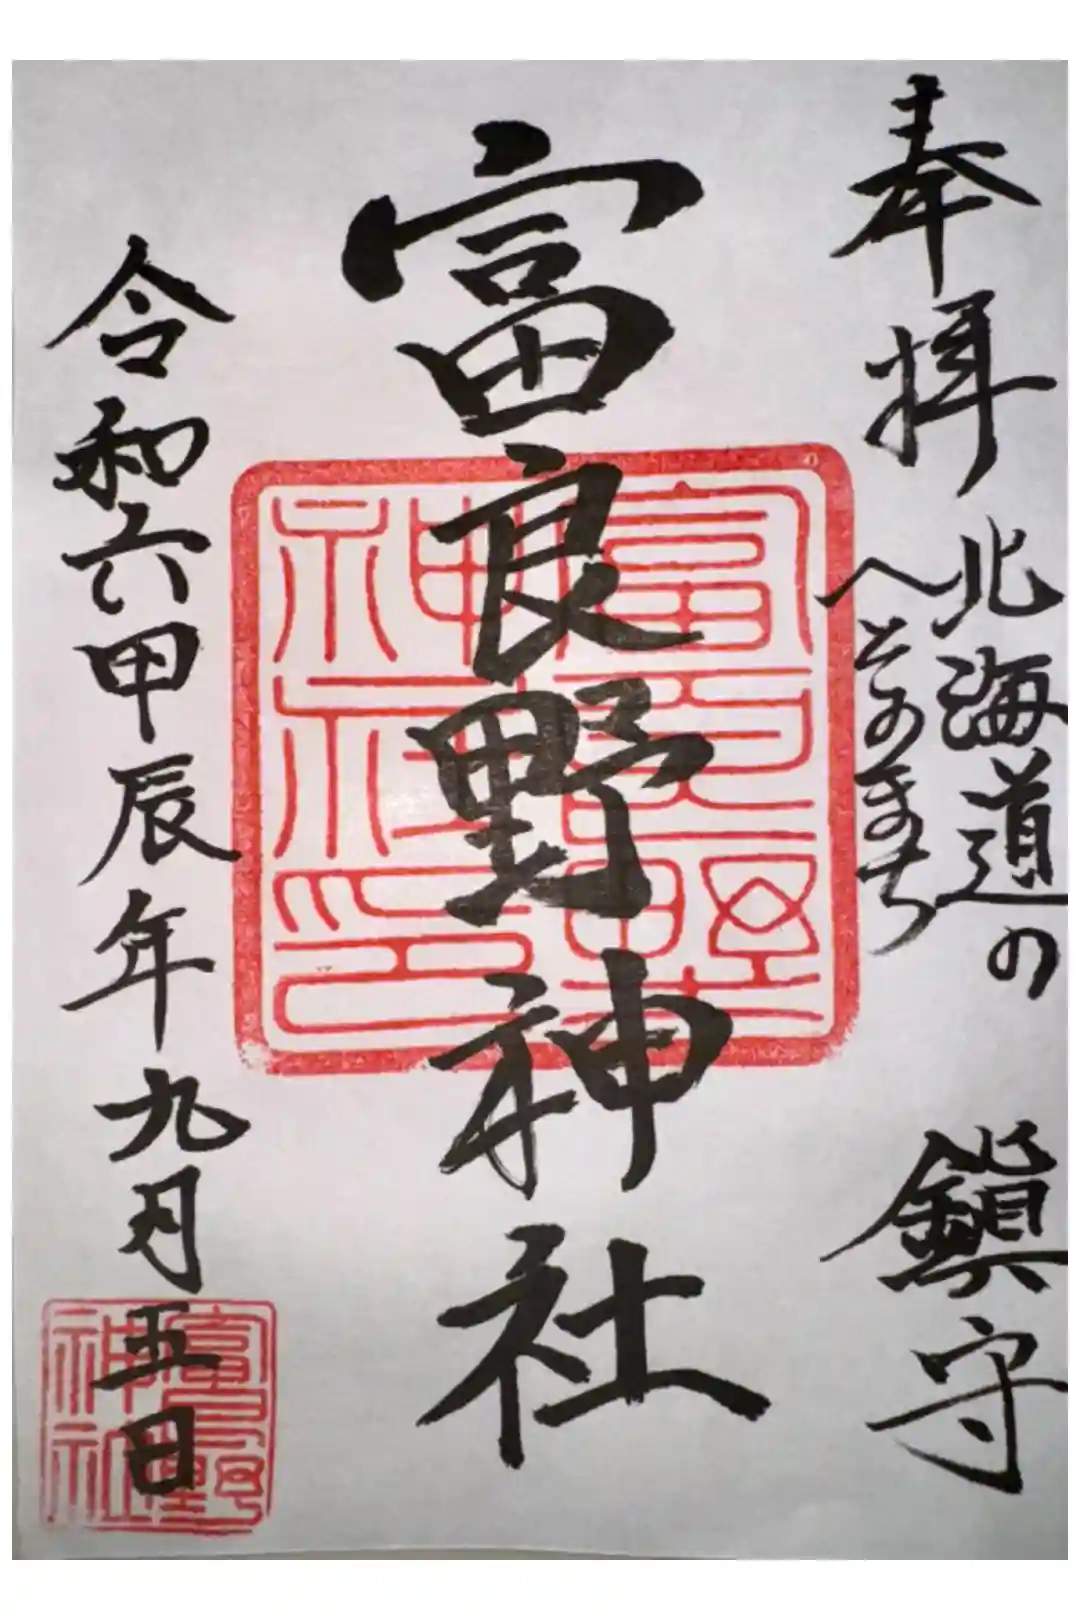 奉拝
北海道の
へそのまち
鎮守
富良野神社
富良野神社印
令和六甲辰年九月五日
富良野神社